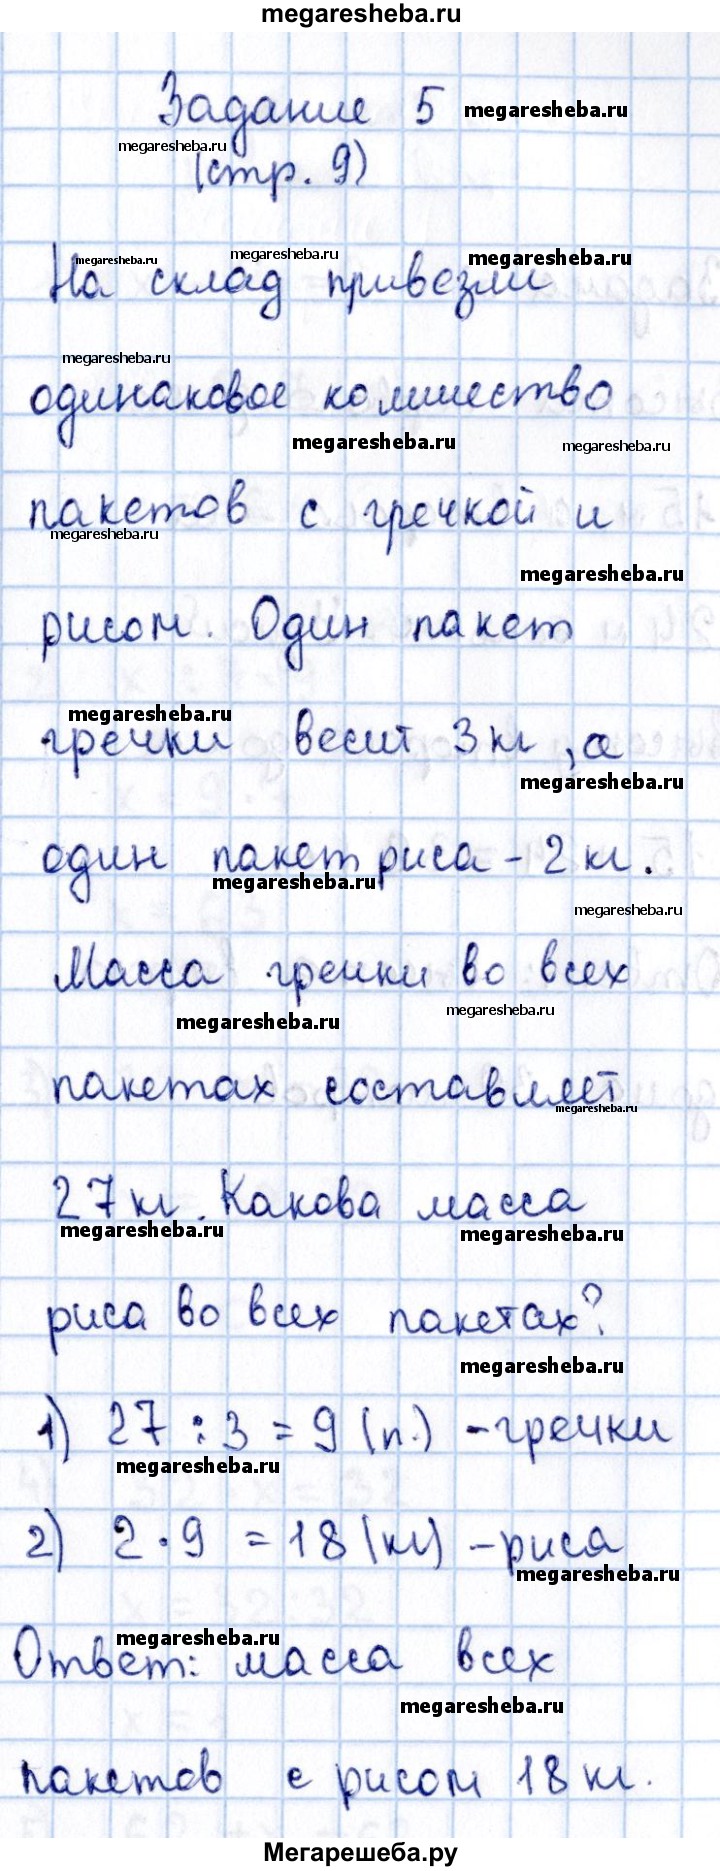 megaresheba.ru
Задание 5 megaresheba.ru
megaresheba.ru
(стр. 9)
megaresheba.ru megaresheba.ru megaresheba.ru
На склад привезли
megaresheba.ru
одинаковое количество
megaresheba.ru megaresheba.ru
пакетов с гречкой и
megaresheba.ru
megaresheba.ru
рисом. Один пакет
megaresheba.ru
гречки весит 3 кг, а
megaresheba.ru
один пакет риса - 2 кг.
megaresheba.ru
megaresheba.ru
Масса гречки во всех
megaresheba.ru megaresheba.ru
пакетах составляет
megaresheba.ru
27 кг. Какова масса
megaresheba.ru megaresheba.ru
риса во всех пакетах?
megaresheba.ru
1) 27 : 3 = 9 (п.) - гречки
megaresheba.ru
2) 2 · 9 = 18 (кг) - риса
megaresheba.ru
megaresheba.ru
Ответ: масса всех
megaresheba.ru
пакетов с рисом 18 кг.
Мегарешеба.ру